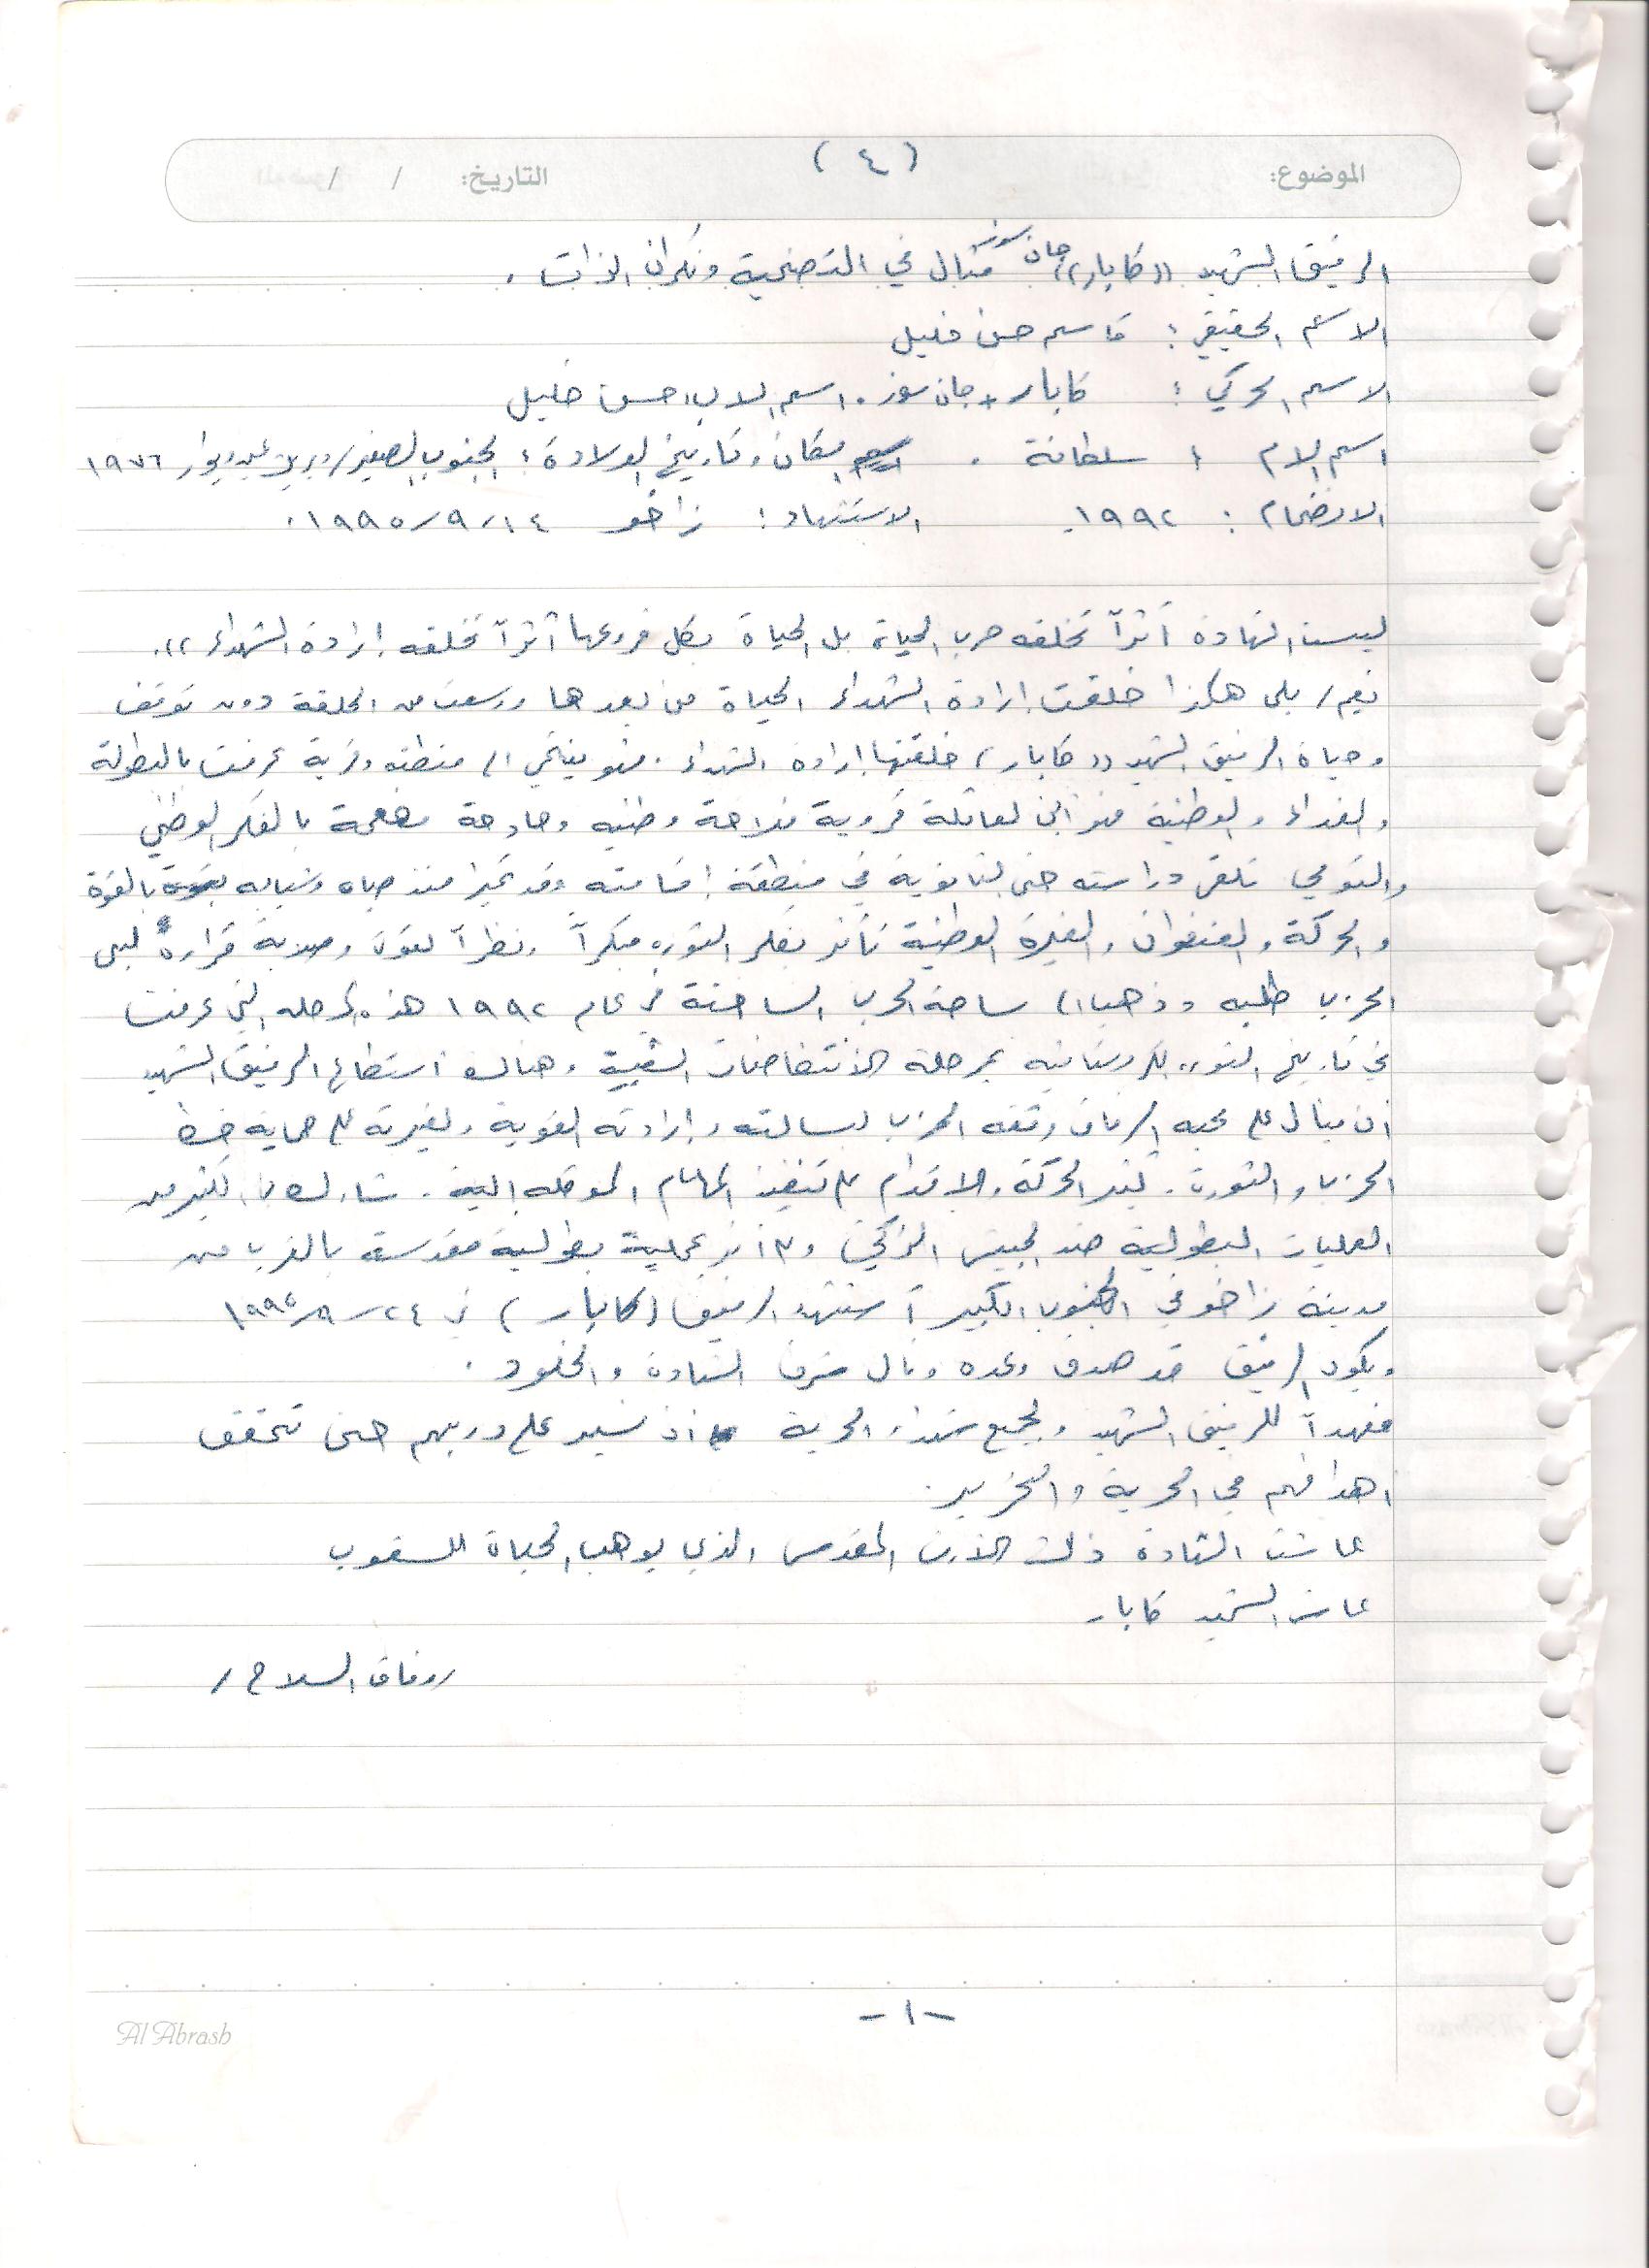 الموضوع: (٤) التاريخ: / /
الرفيق الشهيد ((كابار)) جان سوز مثال في التضحية ونكران الذات .
الاسم الحقيقي : قاسم حسن خليل
الاسم الحركي : كابار جان سوز . اسم الاب : حسن خليل
اسم الام : سلطانة . مكان وتاريخ الولادة : الجنوب الصغير / ديريك ١٩٧٦
الانضمام : ١٩٩٢ الاستشهاد : زاخو ١٤/٩/١٩٩٥ .
ليست الشهادة أثراً تخلقه حرب الحياة بل الحياة بكل فروعها أثراً تخلقه إرادة الشهداء )) .
نعم / بلى هكذا خلقت إرادة الشهداء الحياة من بعدها ووسعت من الحلقة دون توقف
وحياة الرفيق الشهيد (( كابار ) خلقتها إرادة الشهداء . فهو ينتمي الى منطقة وقرية عرفت بالبطولة
والفداء والوطنية فهو ابن لعائلة قروية فلاحة وطنية مفعمة بالفكر الوطني
والقومي تلقى دراسته حتى الثانوية في منطقة إقامته وقد تميز منذ صباه وشبابه بالقوة
والحركة والعنفوان والغيرة الوطنية تأثر بفكر الثورة مبكراً ونظراً لقوة وصلابة قراره لبى
الحزب طلبه وذهب الى ساحة الحرب الساخنة في عام ١٩٩٢ هذه المرحلة التي عرفت
في تاريخ الثورة الكردستانية بمرحلة الانتفاضات الشعبية وهناك استطاع الرفيق الشهيد
ان ينال على محبة الرفاق وثقة الحزب لبسالته وإرادته القوية ولغيرته على حماية خط
الحزب والثورة . كثير الحركة والاقدام على تنفيذ المهام الموكلة اليه . شارك بـ الكثير من
العمليات البطولية ضد الجيش التركي و بطولية مقدسة بالقرب من
مدينة زاخو في الجنوب الكبير أستشهد الرفيق (كابار) في ٢٤/٩/١٩٩٥
ويكون الرفيق قد صدق وعده ونال شرف الشهادة والخلود .
فعهداً للرفيق الشهيد ولجميع شهداء الحرية ان نسير على دربهم حتى تتحقق
اهدافهم في الحرية والتحرير .
عاشت الشهادة ذلك المقدس الذي يوهب الحياة للشعوب
عاش الشهيد كابار
/ رفاق السلاح /
-١-
Al Abrash